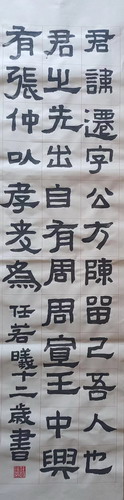 君諱遷字公方陳留己吾人也
君之先出自有周周宣王中興
有張仲以孝友為
任若曦十二歲書